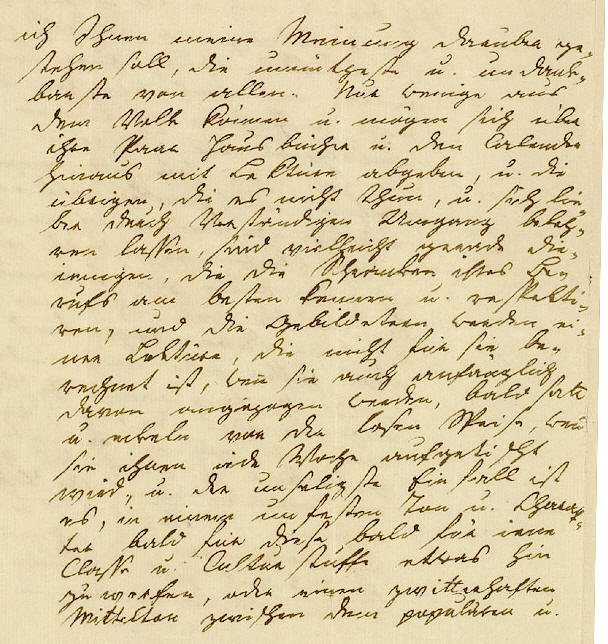 ich Ihnen meine Meinung darüber ge-
stehen soll, die unnützeste u. undank-
barste von allen. Nur wenige aus
dem Volk können u. mögen sich über
ihre Paar Hausbücher u. den Calender
hinaus mit Lektüre abgeben, u. die
übrigen, die es nicht thun, u. sich lie-
ber durch Verständigen Umgang beleh-
ren lassen, sind vielleicht gerade die-
ienigen, die die Schranken ihres Be-
rufs am besten kennen u. respekti-
ren, und die Gebildetern werden ei-
ner Lektüre, die nicht für sie be-
rechnet ist, wenn sie auch anfänglich
davon angezogen werden, bald satt
u. ekeln von der losen Speise, wenn
sie ihnen iede Woche aufgetischt
wird, u. der unseligste Einfall ist
es, in einem unfesten Ton u. Charak-
ter bald für diese bald für iene
Classe u. Culturstuffe etwas hin
zu werfen, oder einen zwitterhaften
Mittelton zwischen dem populären u.